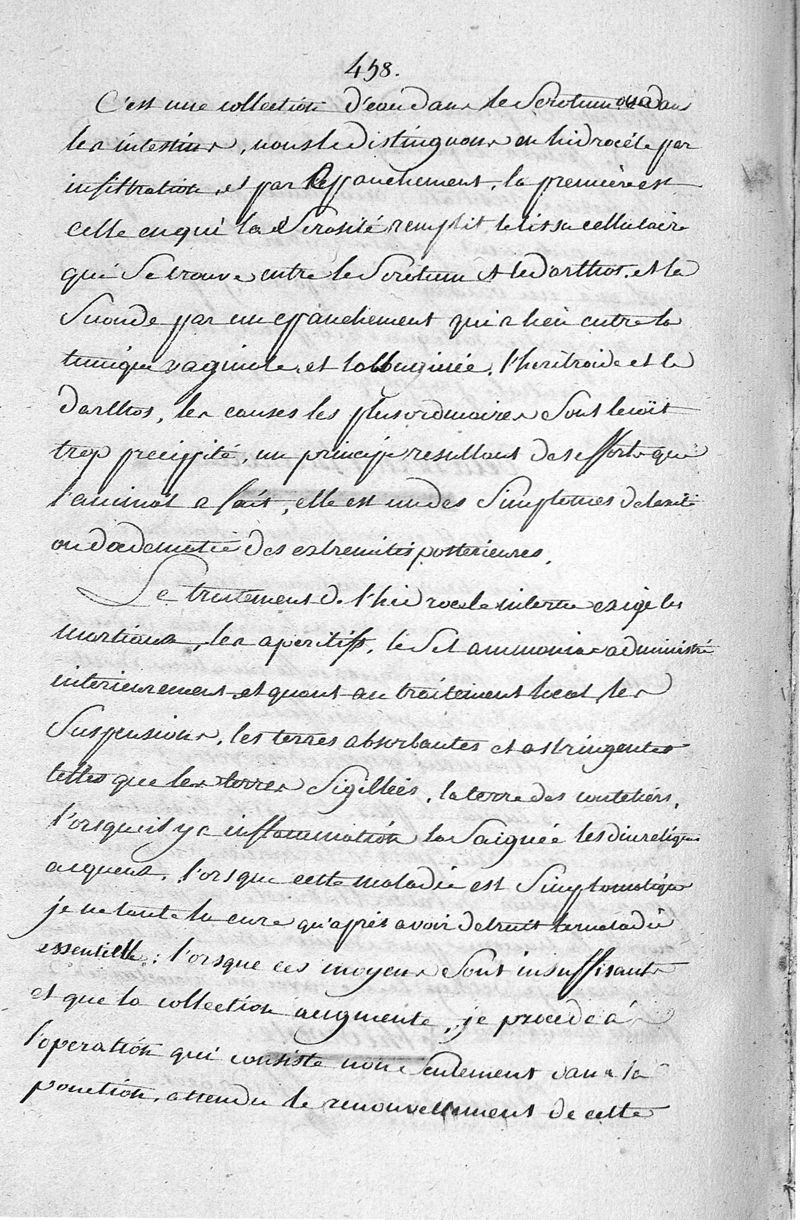 458.
C'est une collection d'eau dans le Scrotum ou dans
les intestins, nous le distinguons en hidrocéle par
infiltration, et par epanchement, la premiere est
celle en qui la Serosité remplit le tissu cellulaire
qui Se trouve entre le Scrotum et le darthos, et la
Seconde par un epanchement qui a lieu entre la
tunique vaginale, et l'albuginée, l'heritroide et le
darthos, les causes les plus ordinaires Sont
trop precipité, un principe resultant des efforts que
l'animal a fait, elle est un des Simptomes de
ou d'oedematie des extremités posterieures.
Le traitement de l'hidrocele interne exige les
martiaux, les aperitifs, le Sel ammoniac administré
interieurement et quant au traitement local, les
Suspensions, les terres absorbantes et astringentes
telles que les terres Sigillées, la terre des couteliers,
l'orsqu'il y a inflammation la Saignée les diuretiques
aqueux, l'orsque cette maladie est Simptomatique
je ne tante la cure qu'après avoir detruit la maladie
essentielle; l'orsque ces moyens Sont insuffisants
et que la collection augmente, je procede à
l'operation qui consiste non Seulement dans la
ponction, attendu le renouvellement de cette